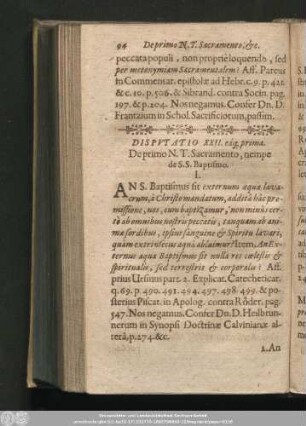 94 De primo N. T. Sacramento, &c.
peccata populi, non propriè loquendo, sed
per metonymiam Sacramentalem? Aff. Pareus
in Commentar. epistolæ ad Hebr. c. 9. p. 421.
& c. 10. p. 506. & Sibrand. contra Socin. pag.
197. & p. 204. Nos negamus. Confer Dn. D.
Frantzium in Schol. Sacrificiorum, passim.
DISPVTATIO XXII. eáq; prima.
De primo N. T. Sacramento, nempe
de S. S. Baptismo.
I.
AN S. Baptismus sit externum aquæ lava-
crum, à Christo mandatum, addita hâc pro-
missione, nos, cum baptizamur, non minùs cer-
tò ab omnibus nostris peccatis, tanquam ab ani-
mæ sordibus, ipsius sanguine & Spiritu lavari,
quàm extrinsecus aquâ abluimur? Item, An Ex-
ternus aquæ Baptismus sit nulla res cœlestis &
spiritualis, sed terrestris & corporalis? Aff.
prius Ursinus part. 2. Explicat. Catecheticar.
q. 69. p. 490. 491. 494. 497. 498. 499. & po-
sterius Piscat. in Apolog. contra Röder. pag.
547. Nos negamus. Confer Dn. D. Heilbrun-
nerum in Synopsi Doctrinæ Calvinianæ al-
terâ, p. 274. &c.
2. An